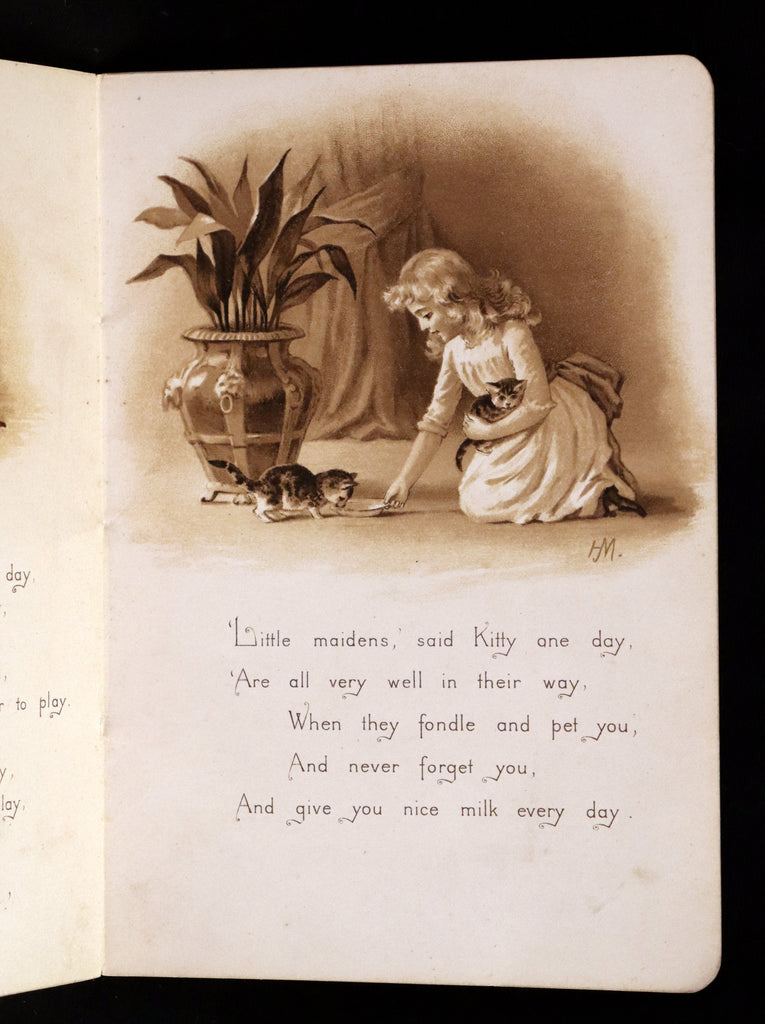 day,
r to play.
lay,
HM.
'Little maidens,' said Kitty one day,
'Are all very well in their way,
When they fondle and pet you,
And never forget you,
And give you nice milk every day.